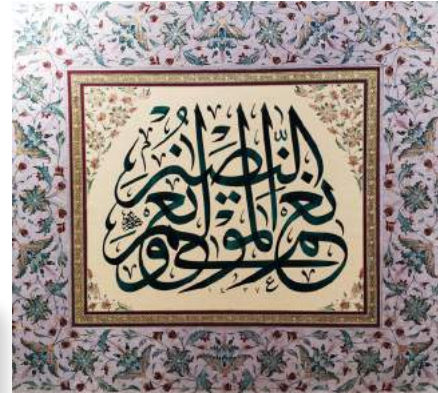 نعم المولى ونعم النَّصيرُ